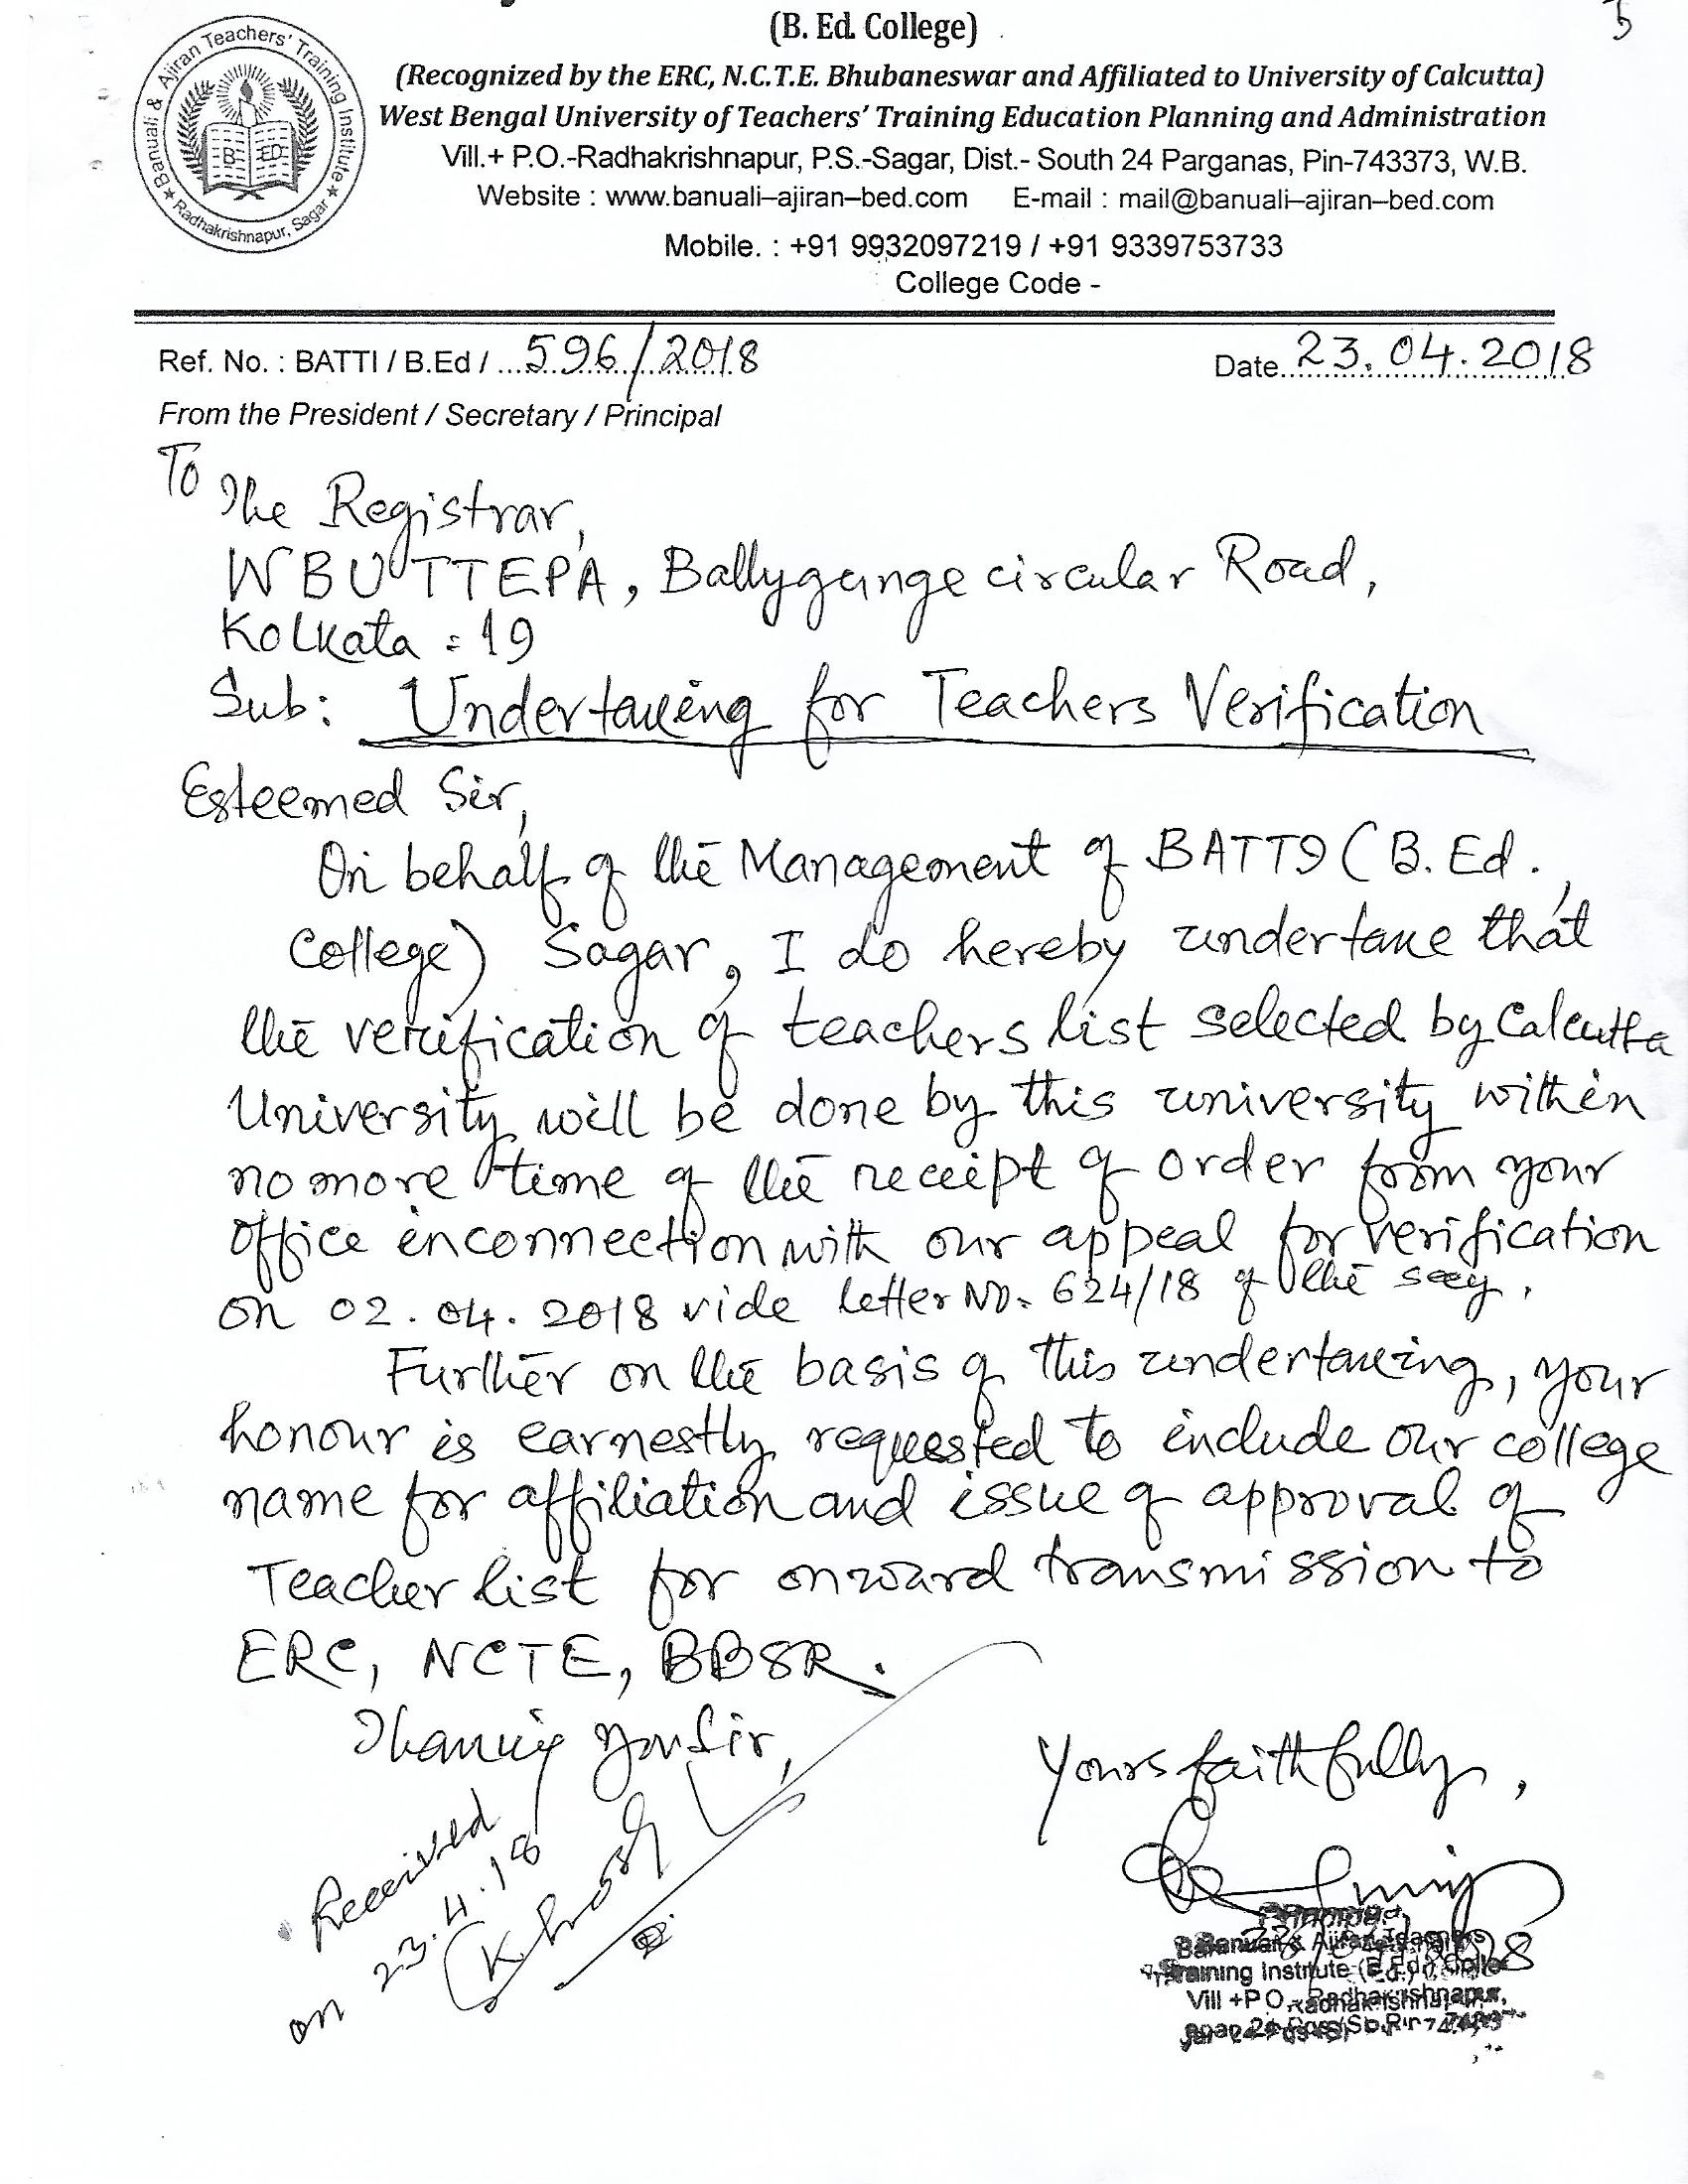 5
(B. Ed. College)
Banuali & Ajiran Teachers' Training Institute
★ Radhakrishnapur, Sagar ★
B ED
(Recognized by the ERC, N.C.T.E. Bhubaneswar and Affiliated to University of Calcutta)
West Bengal University of Teachers' Training Education Planning and Administration
Vill.+ P.O.-Radhakrishnapur, P.S.-Sagar, Dist.- South 24 Parganas, Pin-743373, W.B.
Website : www.banuali–ajiran–bed.com E-mail : mail@banuali–ajiran–bed.com
Mobile. : +91 9932097219 / +91 9339753733
College Code -
Ref. No. : BATTI / B.Ed / ...596/2018 Date...23.04.2018
From the President / Secretary / Principal
To
The Registrar,
WBUTTEPA, Ballygunge circular Road,
Kolkata = 19
Sub: Undertaking for Teachers Verification
Esteemed Sir,
On behalf of the Management of BATTI (B. Ed.
College) Sagar, I do hereby undertake that
the verification of teachers list selected by Calcutta
University will be done by this university within
no more time of the receipt of order from your
office inconnection with our appeal for verification
on 02.04.2018 vide letter No. 624/18 of the secy.
Further on the basis of this undertaking, your
honour is earnestly requested to include our college
name for affiliation and issue of approval of
Teacher list for onward transmission to
ERC, NCTE, BBSR.
Thanking you Sir,
Yours faithfully,
Received
on 23.4.18
Principal
Banuali & Ajiran Teachers
Training Institute (B.Ed.) College
Vill +P.O.-Radhakrishnapur,